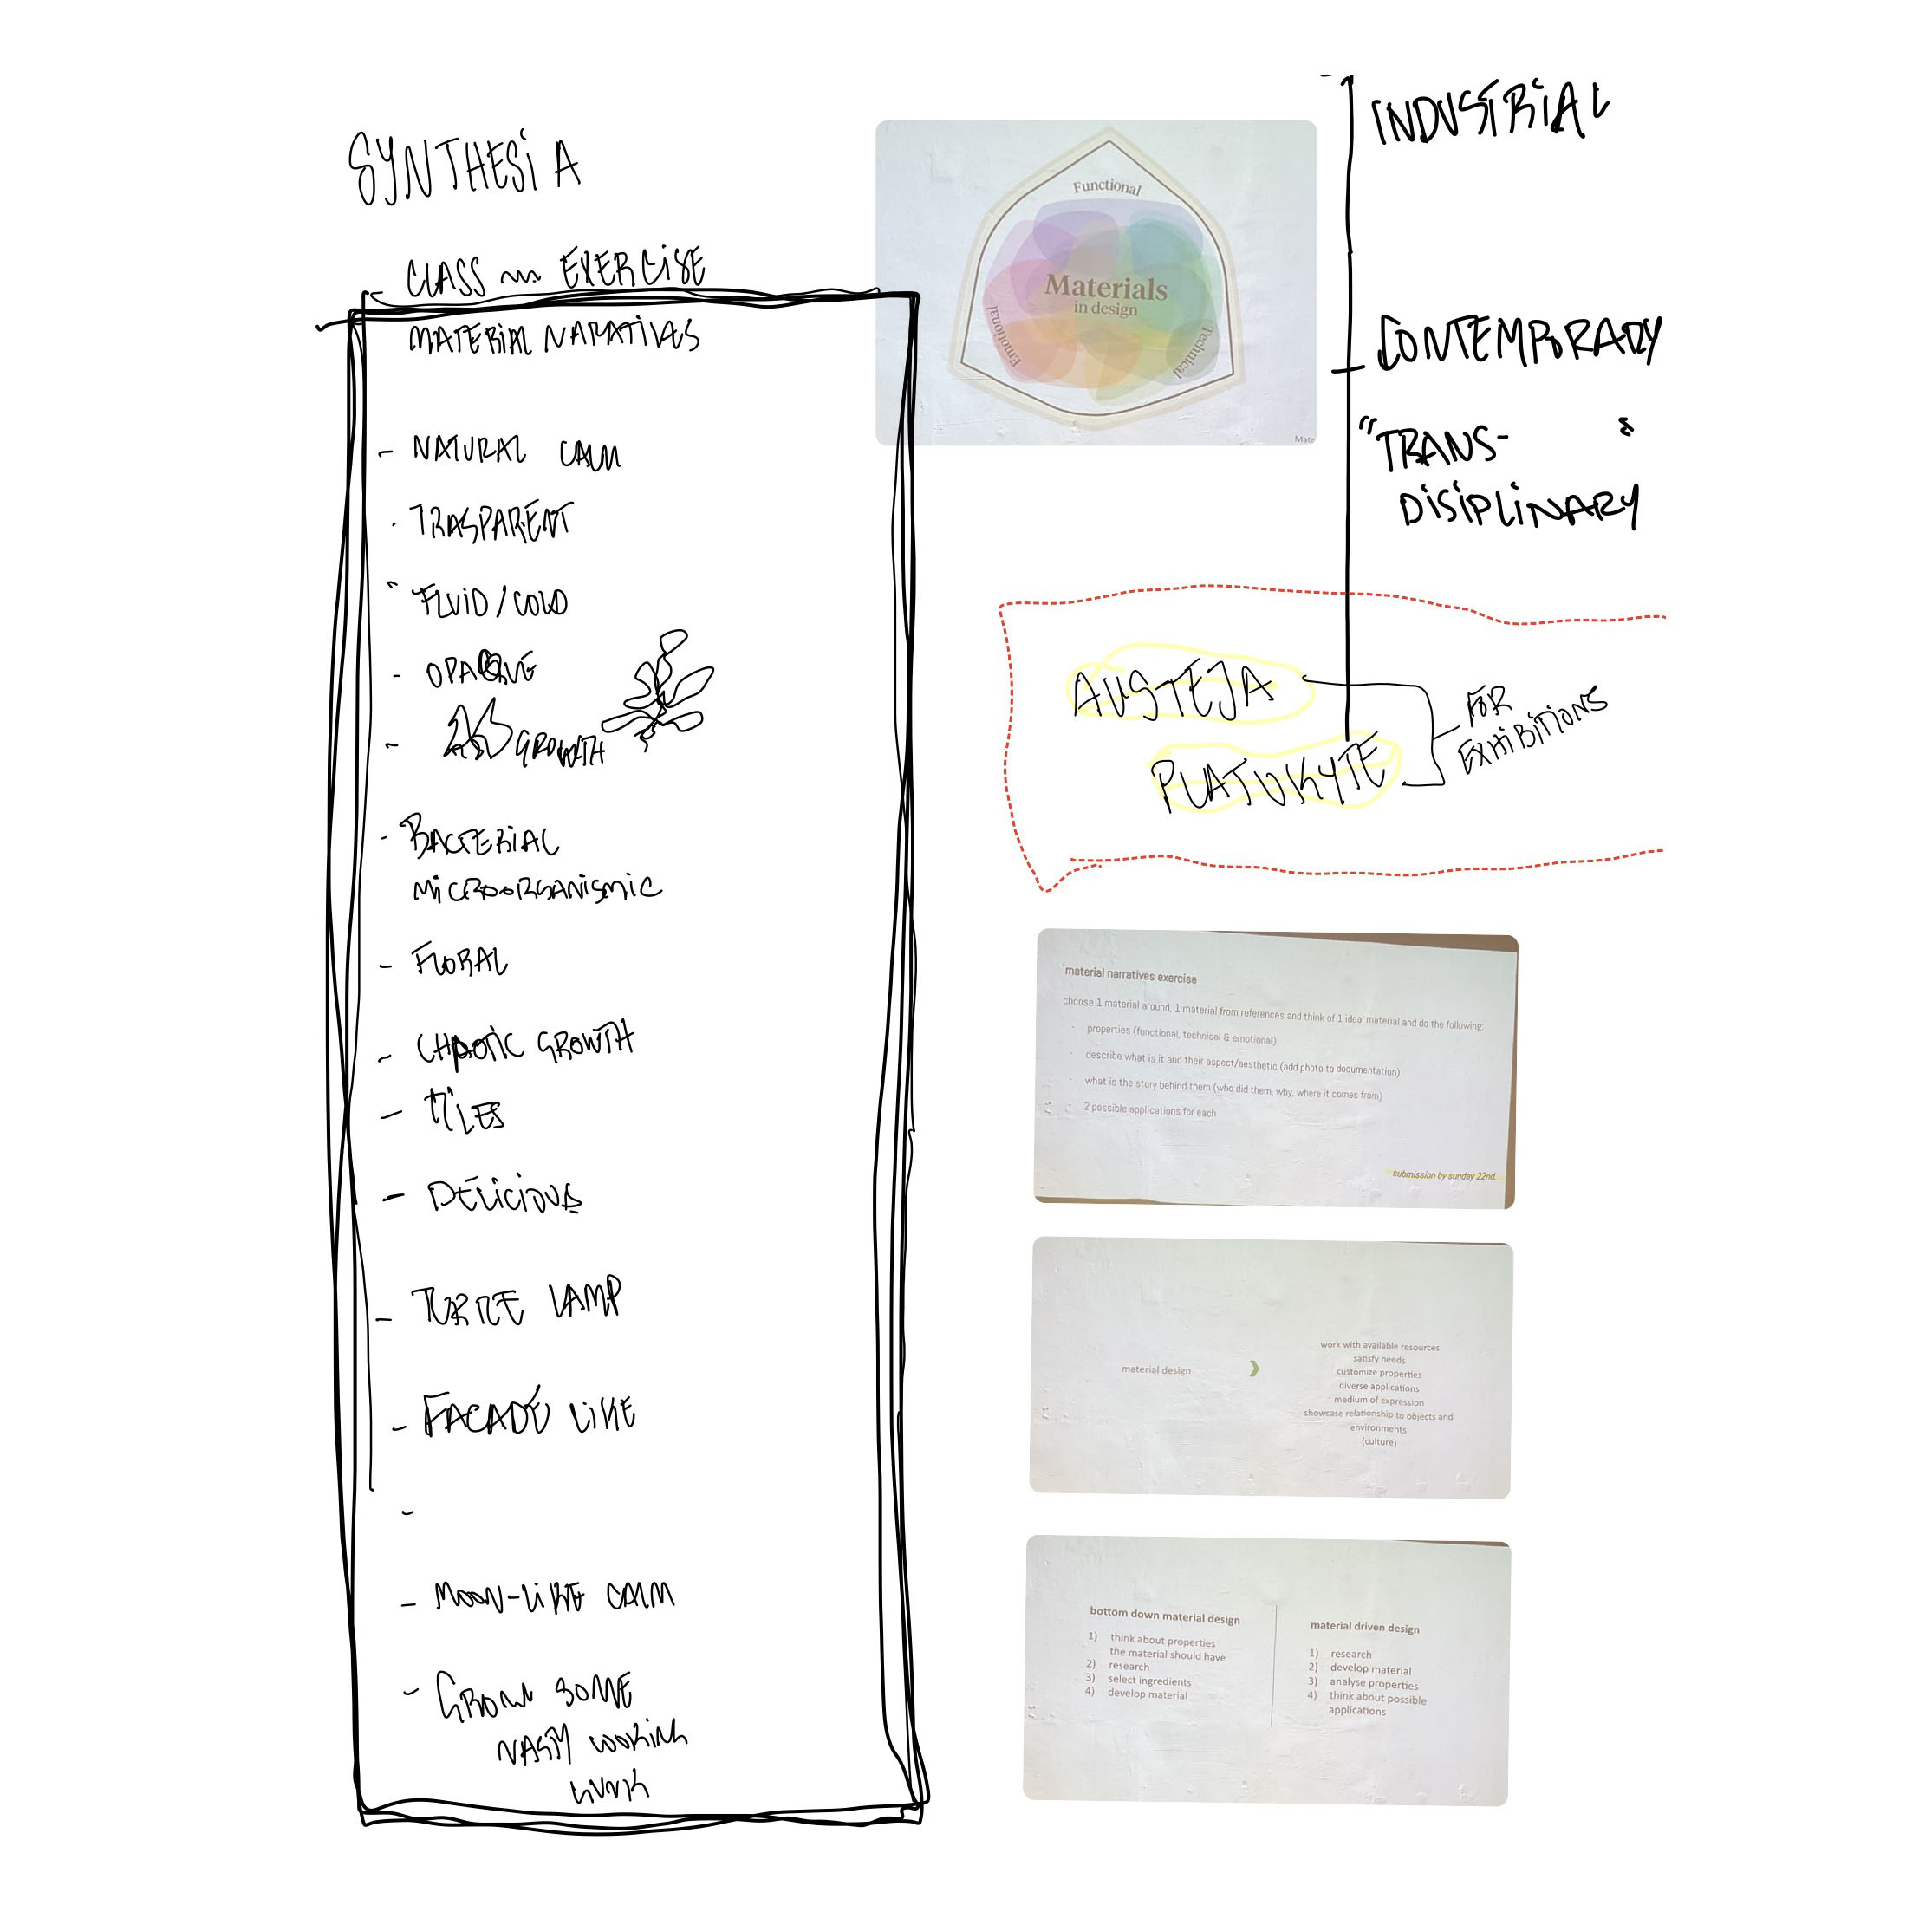 SYNTHESiA
CLASS EXERCISE
MATERIAL NARATIVES
- NATURAL CALM
- TRASPARENT
- FLUiD / COLD
- OPAQUE
- GROWTH
- BACTERIAL
MICROORGANISMIC
- FLORAL
- CHAOTIC GROWTH
- TILES
- DELICIOUS
- TURTLE LAMP
- FACADE LIKE
-
- MOON-LIKE CALM
- GROW SOME
NASTY LOOKING
Functional
Materials
in design
Emotional
Technical
Mate
INDUSTRIAL
CONTEMPORARY
"TRANS- "
DISIPLINARY
AUSTEJA
PLATUKYTE
FOR
EXHIBITIONS
material narratives exercise
choose 1 material around, 1 material from references and think of 1 ideal material and do the following:
- properties (functional, technical & emotional)
- describe what is it and their aspect/aesthetic (add photo to documentation)
- what is the story behind them (who did them, why, where it comes from)
- 2 possible applications for each
submission by sunday 22nd.
material design
work with available resources
satisfy needs
customize properties
diverse applications
medium of expression
showcase relationship to objects and
environments
(culture)
bottom down material design
1) think about properties
the material should have
2) research
3) select ingredients
4) develop material
material driven design
1) research
2) develop material
3) analyse properties
4) think about possible
applications